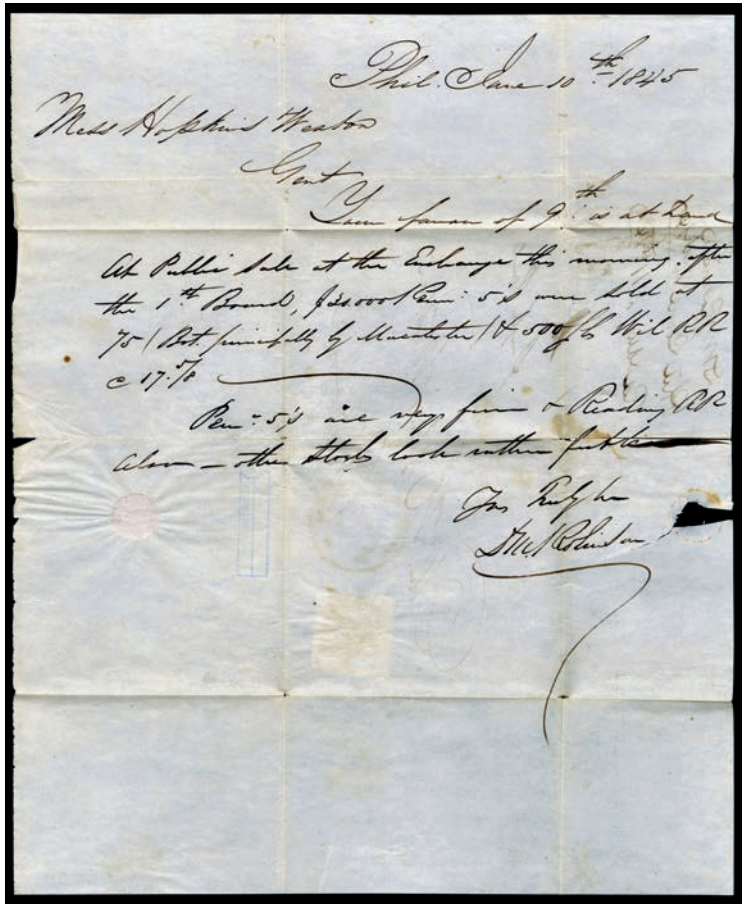 Phil. June 10th 1845
Mess Hopkins Weston
Gent
Your favor of 9th is at hand
At Public Sale at the Exchange this morning, after
the 1st Board, $20.000 Penn: 5's were sold at
75 (Bot. principally by Macalester) & 500 Wil RR
@ 17.5/8
Penn 5's are very firm & Reading RR
also — other Stocks look rather feeble
Yrs Truly
Robinson